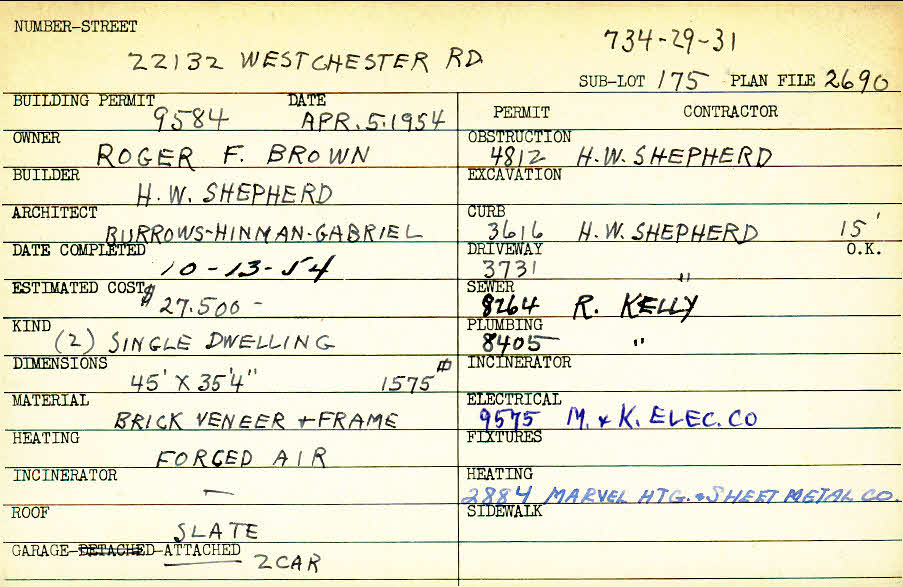 NUMBER-STREET
22132 WESTCHESTER RD.
734-29-31
SUB-LOT 175 PLAN FILE 2690
BUILDING PERMIT 9584 DATE APR. 5. 1954
OWNER ROGER F. BROWN
BUILDER H. W. SHEPHERD
ARCHITECT BURROWS-HINMAN-GABRIEL
DATE COMPLETED 10-13-54
ESTIMATED COST $ 27.500 -
KIND (2) SINGLE DWELLING
DIMENSIONS 45' X 35'4" 1575
MATERIAL BRICK VENEER + FRAME
HEATING FORCED AIR
INCINERATOR —
ROOF SLATE
GARAGE-DETACHED-ATTACHED 2 CAR
PERMIT CONTRACTOR
OBSTRUCTION 4812 H. W. SHEPHERD
EXCAVATION
CURB 3616 H. W. SHEPHERD 15'
DRIVEWAY 3731 " O.K.
SEWER 8264 R. KELLY
PLUMBING 8405 "
INCINERATOR
ELECTRICAL 9575 M. & K. ELEC. CO
FIXTURES
HEATING 2884 MARVEL HTG. & SHEET METAL CO.
SIDEWALK